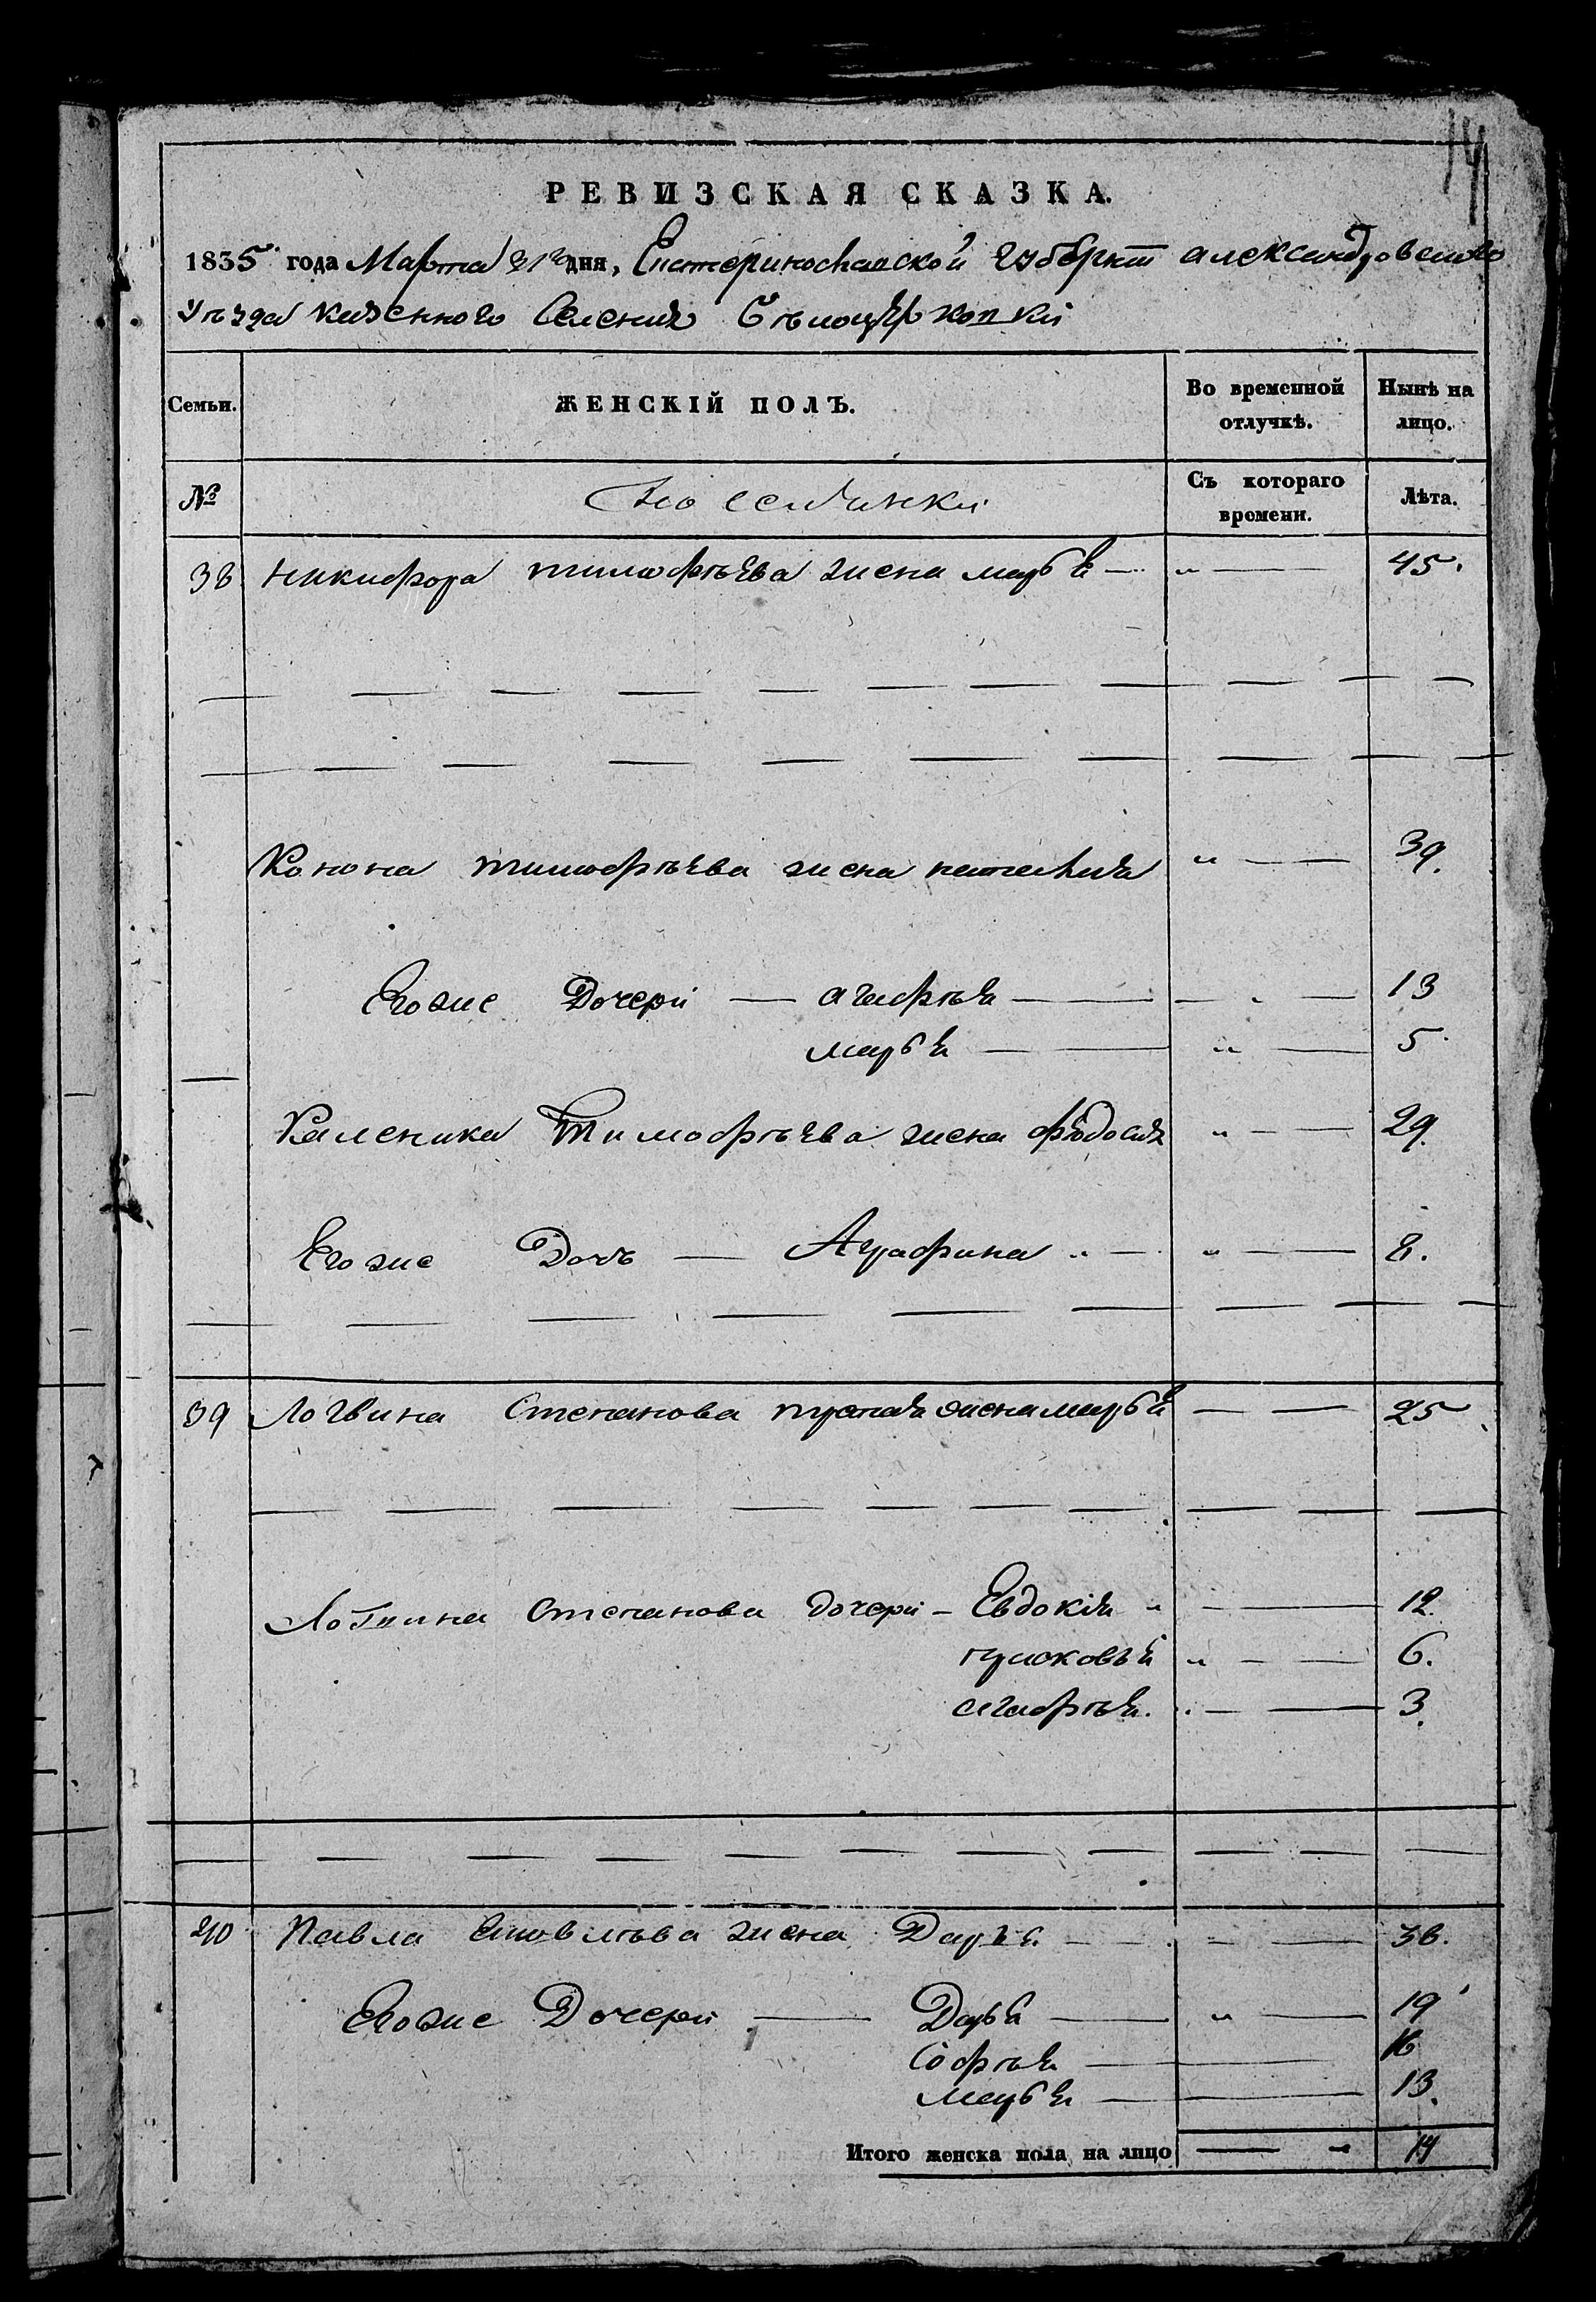 14
РЕВИЗСКАЯ СКАЗКА.
1835 года Марта 21го дня, Екатеринославской губерніи александровского
Уѣзда казенного Селенія Бѣлоцерковки
Семьи. ЖЕНСКІЙ ПОЛЪ. Во временной отлучкѣ. Нынѣ на лицо.
№ Съ котораго времени. Лѣта.
38 никифора тимофѣева жена марья 45.
Конона тимофѣева жена наталия 39.
Егоже Дочери — агафья 13
марья 5
Каленика Тимофѣева жена федосия 29.
Егоже Дочь — Аграфина 8.
39 Логвина Степанова жена марья 25
Логвина Степанова дочери - Евдокія 12.
6.
агафья. 3.
40 Павла жена Дарья 36.
Егоже Дочери Дарья 19
Софья 16
марья 13.
Итого женска пола на лицо 14